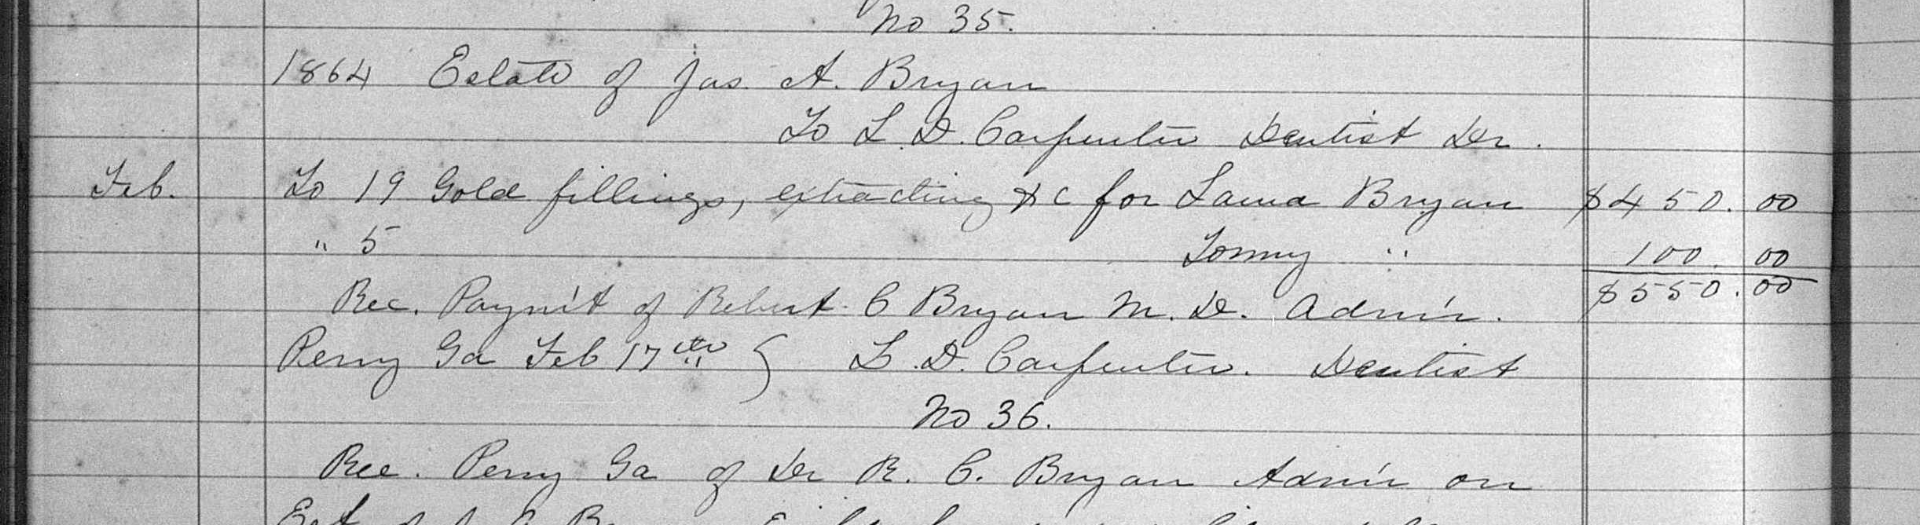 No 35.
1864 Estate of Jas. A. Bryan
To L. D. Carpenter Dentist Dr.
Feb. To 19 Gold fillings, extracting &c for Laura Bryan $450.00
" 5 Tommy " 100.00
$550.00
Rec. Paym't of Robert C Bryan M. D. Admr.
Perry Ga Feb 17th } L. D. Carpenter. Dentist
No 36.
Rec. Perry Ga of Dr R. C. Bryan Admr on
Est of